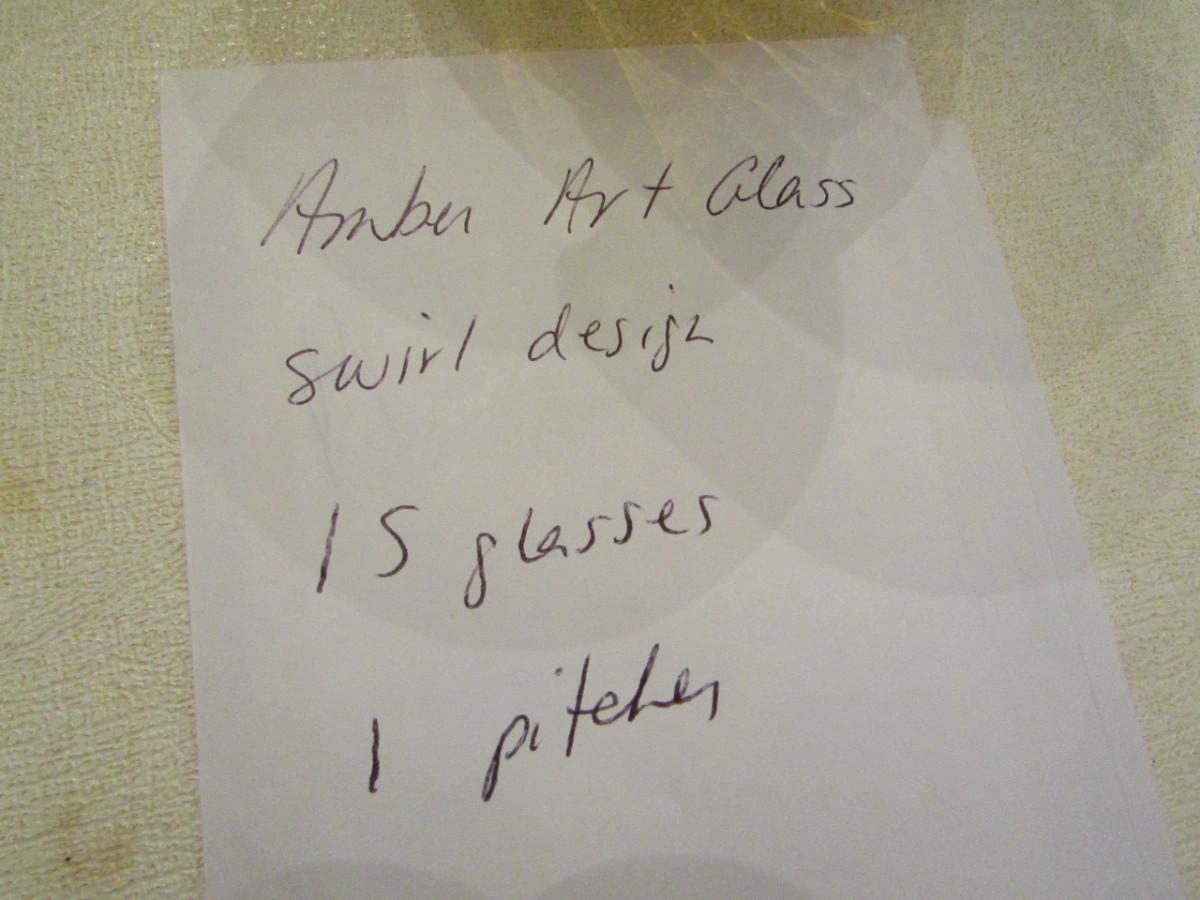 Amber Art Glass
swirl design
15 glasses
1 pitcher